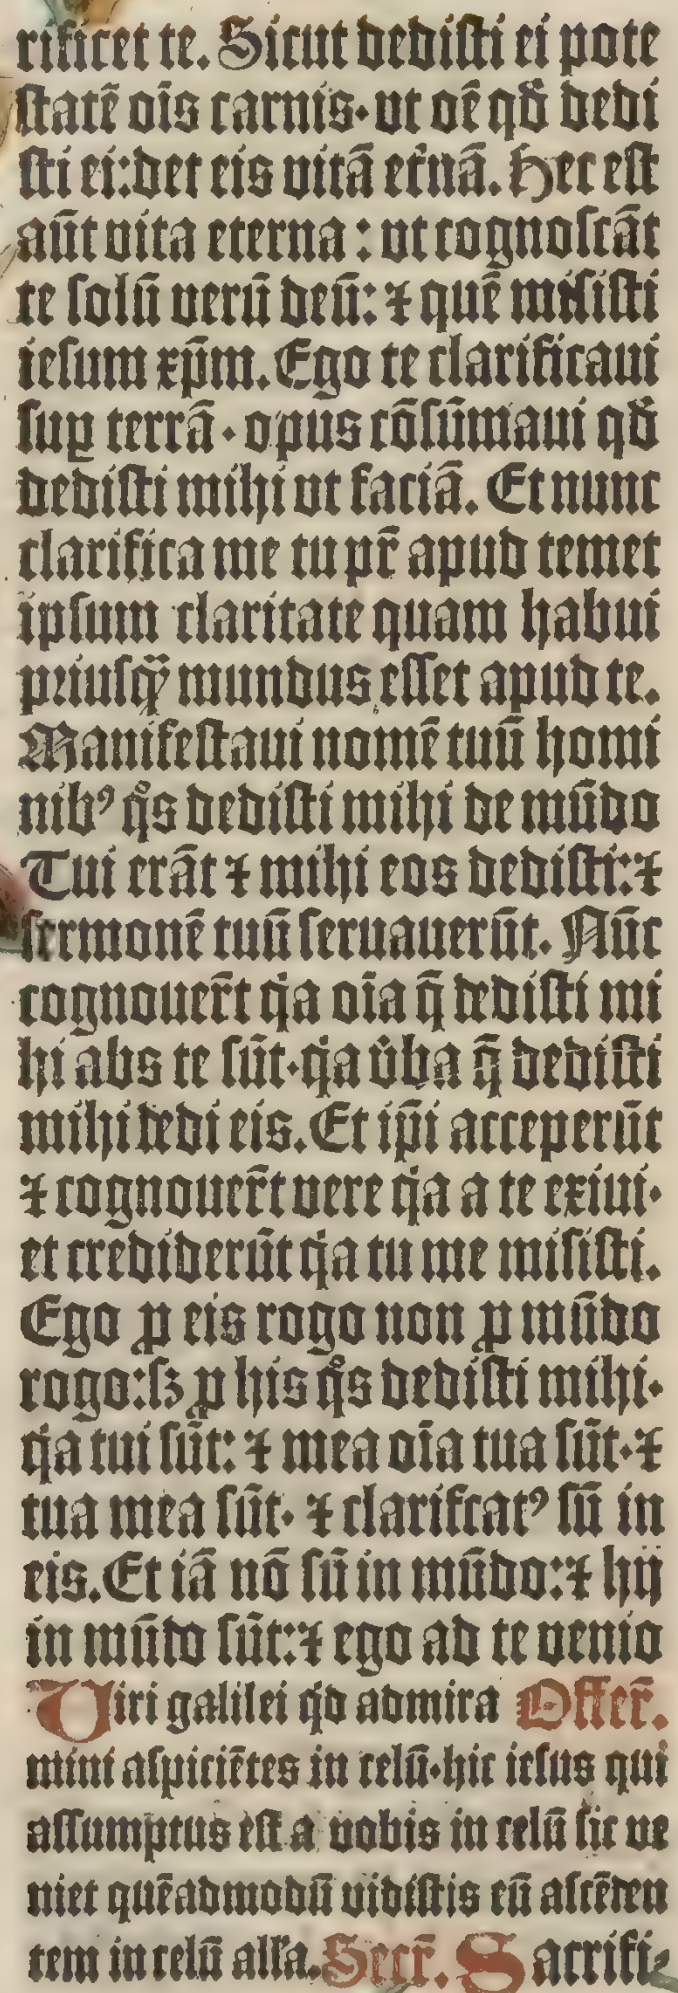 rificet te. Sicut dedisti ei pote
statē oīs carnis· ut oē qđ dedi
sti ei: det eis uitā et̄nā. Hec est
aūt uita eterna : ut cognoscāt
te solū uerū deū: ⁊ quē misisti
iesum xp̄m. Ego te clarificaui
suꝑ terrā · opus cōsūmaui qđ
dedisti mihi ut faciā. Et nunc
clarifica me tu pr̄ apud temet
ipsum claritate quam habui
priusq̄ȝ mundus esset apud te.
Manifestaui nomē tuū homi
nibꝰ qͦs dedisti mihi de mūdo
Tui erāt ⁊ mihi eos dedisti: ⁊
sermonē tuū seruauerūt. Nūc
cognouer̄t qͥa oīa q̄ dedisti mi
hi abs te sūt· qͥa u̾ba q̄ dedisti
mihi dedi eis. Et ip̄i acceperūt
⁊ cognouer̄t uere qͥa a te exiui·
et crediderūt qͥa tu me misisti.
Ego ꝓ eis rogo non ꝓ mūdo
rogo: sꝫ ꝓ his qͦs dedisti mihi·
qͥa tui sūt: ⁊ mea oīa tua sūt· ⁊
tua mea sūt· ⁊ clarifcatꝰ sū in
eis. Et iā nō sū in mūdo: ⁊ hij
in mūdo sūt: ⁊ ego ad te uenio
Uiri galilei qͥd admira Offer̄.
mini aspiciētes in celū· hic iesus qui
assumptus est a uobis in celū sic ue
niet quēadmodū uidistis eū ascēden
tem in celū all'a. Secr̄. Sacrifi⸗